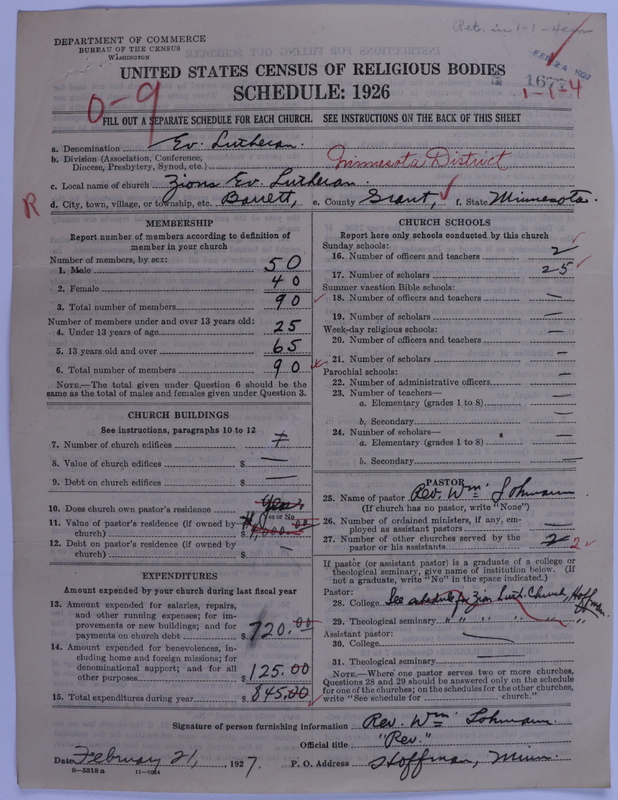 Ret. in 1-1-4
DEPARTMENT OF COMMERCE
BUREAU OF THE CENSUS
WASHINGTON
FEB 24 1927
UNITED STATES CENSUS OF RELIGIOUS BODIES
SCHEDULE: 1926
167
1-1-4
0-9
FILL OUT A SEPARATE SCHEDULE FOR EACH CHURCH. SEE INSTRUCTIONS ON THE BACK OF THIS SHEET
a. Denomination Ev. Lutheran.
b. Division (Association, Conference,
Diocese, Presbytery, Synod, etc.) Minnesota District
c. Local name of church Zions Ev. Lutheran.
R d. City, town, village, or township, etc. Barrett, e. County Grant, f. State Minnesota.
MEMBERSHIP
Report number of members according to definition of
member in your church
Number of members, by sex:
1. Male 50
2. Female 40
3. Total number of members 90
Number of members under and over 13 years old:
4. Under 13 years of age 25
5. 13 years old and over 65
6. Total number of members 90
NOTE.—The total given under Question 6 should be the
same as the total of males and females given under Question 3.
CHURCH BUILDINGS
See instructions, paragraphs 10 to 12
7. Number of church edifices
8. Value of church edifices $ —
9. Debt on church edifices $ —
10. Does church own pastor's residence Yes
Yes or No
11. Value of pastor's residence (if owned by
church) $
12. Debt on pastor's residence (if owned by
church) $ —
EXPENDITURES
Amount expended by your church during last fiscal year
13. Amount expended for salaries, repairs,
and other running expenses; for im-
provements or new buildings; and for
payments on church debt $ 720.00
14. Amount expended for benevolences, in-
cluding home and foreign missions; for
denominational support; and for all
other purposes $ 125.00
15. Total expenditures during year $ 845.00
CHURCH SCHOOLS
Report here only schools conducted by this church
Sunday schools:
16. Number of officers and teachers 2
17. Number of scholars 25
Summer vacation Bible schools:
18. Number of officers and teachers —
19. Number of scholars —
Week-day religious schools:
20. Number of officers and teachers —
21. Number of scholars —
Parochial schools:
22. Number of administrative officers —
23. Number of teachers—
a. Elementary (grades 1 to 8) —
b. Secondary —
24. Number of scholars—
a. Elementary (grades 1 to 8) —
b. Secondary —
PASTOR
25. Name of pastor Rev. Wm. Lohmann
(If church has no pastor, write "None")
26. Number of ordained ministers, if any, em-
ployed as assistant pastors —
27. Number of other churches served by the
pastor or his assistants 2 2
If pastor (or assistant pastor) is a graduate of a college or
theological seminary, give name of institution below. (If
not a graduate, write "No" in the space indicated.)
Pastor:
28. College See schedule for Zion Luth. Church, Hoffman.
29. Theological seminary " " " " " "
Assistant pastor:
30. College —
31. Theological seminary —
NOTE.—Where one pastor serves two or more churches,
Questions 28 and 29 should be answered only on the schedule
for one of the churches; on the schedules for the other churches,
write "See schedule for church."
Signature of person furnishing information Rev. Wm. Lohmann.
Official title "Rev."
Date February 21, 1927. P. O. Address Hoffman, Minn.
8—5518 a 11—8924